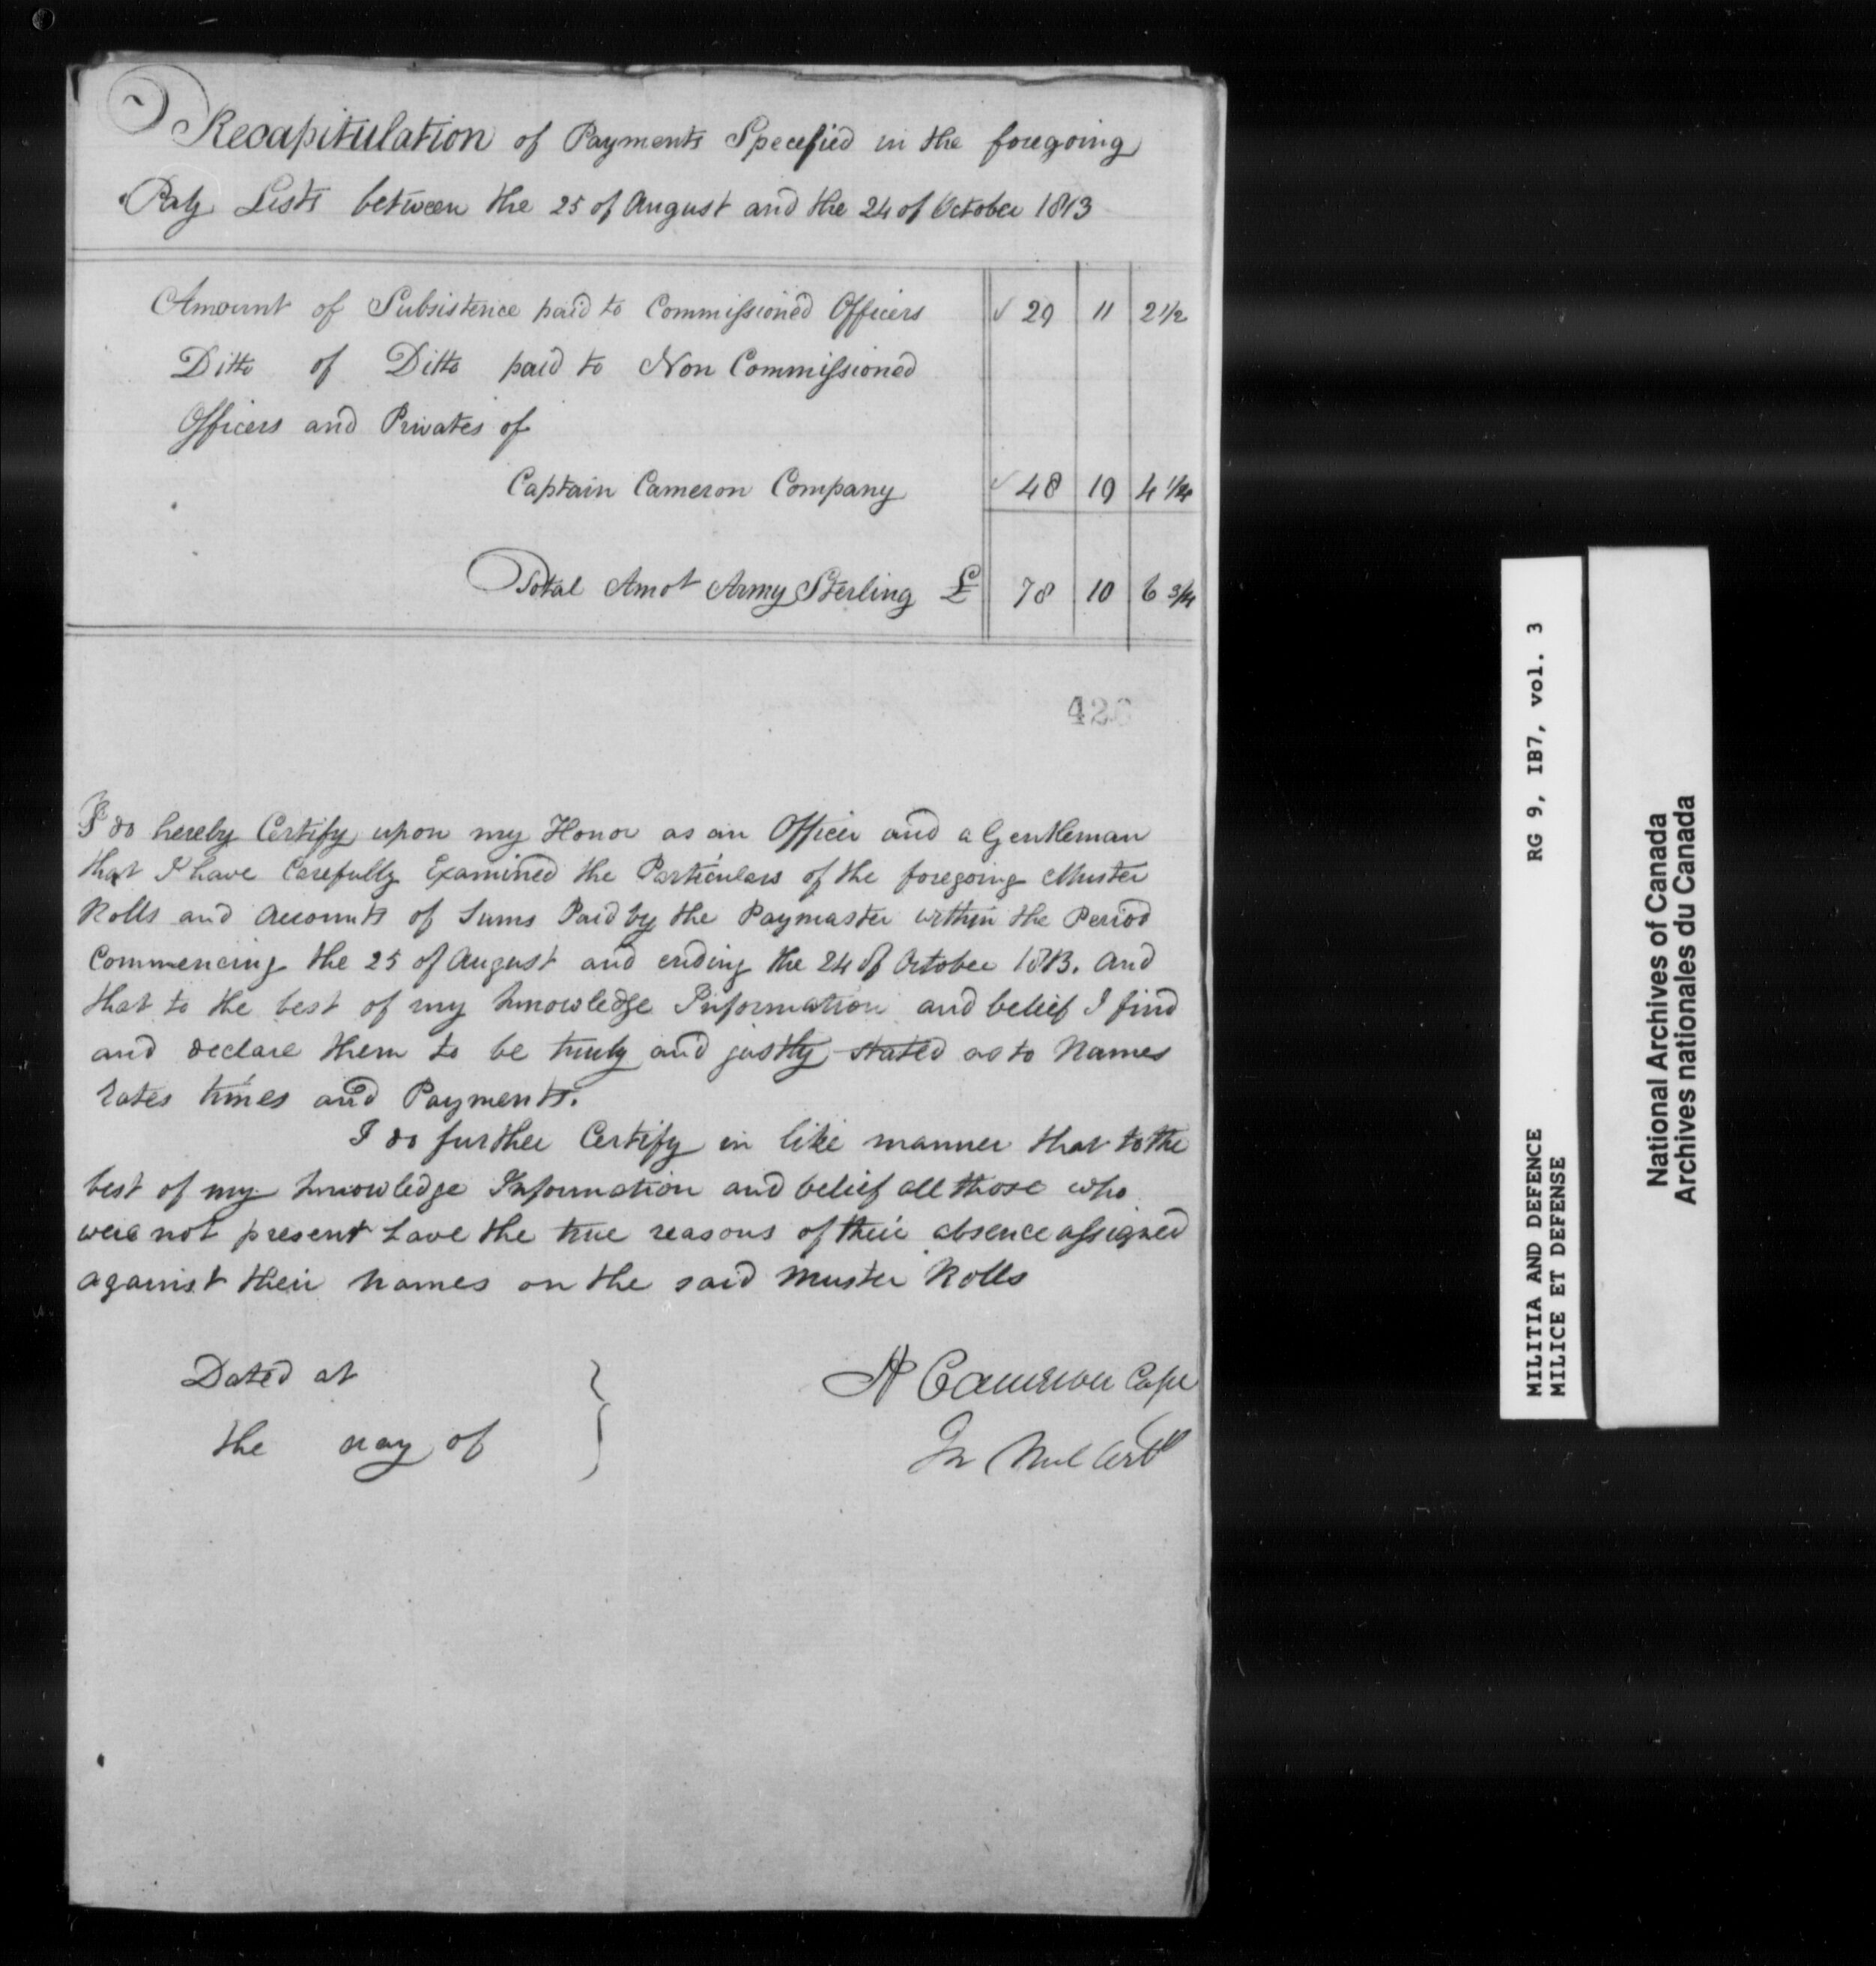 Recapitulation of Payments Specefied in the foregoing
Pay Lists between the 25 of August and the 24 of October 1813
Amount of Subsistence paid to Commissioned Officers ✓ 29 11 2 1/2
Ditto of Ditto paid to Non Commissioned
Officers and Privates of
Captain Cameron Company ✓ 48 19 4 1/4
Total Amot Army Sterling £ 78 10 6 3/4
I do hereby Certify upon my Honor as an Officer and a Gentleman
that I have Carefully Examined the Particulars of the foregoing Muster
Rolls and Accounts of Sums Paid by the Paymaster within the Period
Commencing the 25 of August and ending the 24 of October 1813. and
that to the best of my knowledge Information and belief I find
and declare them to be truly and justly stated as to Names
Rates times and Payments.
I do further Certify in like manner that to the
best of my knowledge Information and belief all those who
were not present have the true reasons of their absence assigned
against their Names on the said Muster Rolls
Dated at
the day of
A Cameron Capt
In Mil Arty
MILITIA AND DEFENCE RG 9, IB7, vol. 3
MILICE ET DEFENSE
National Archives of Canada
Archives nationales du Canada